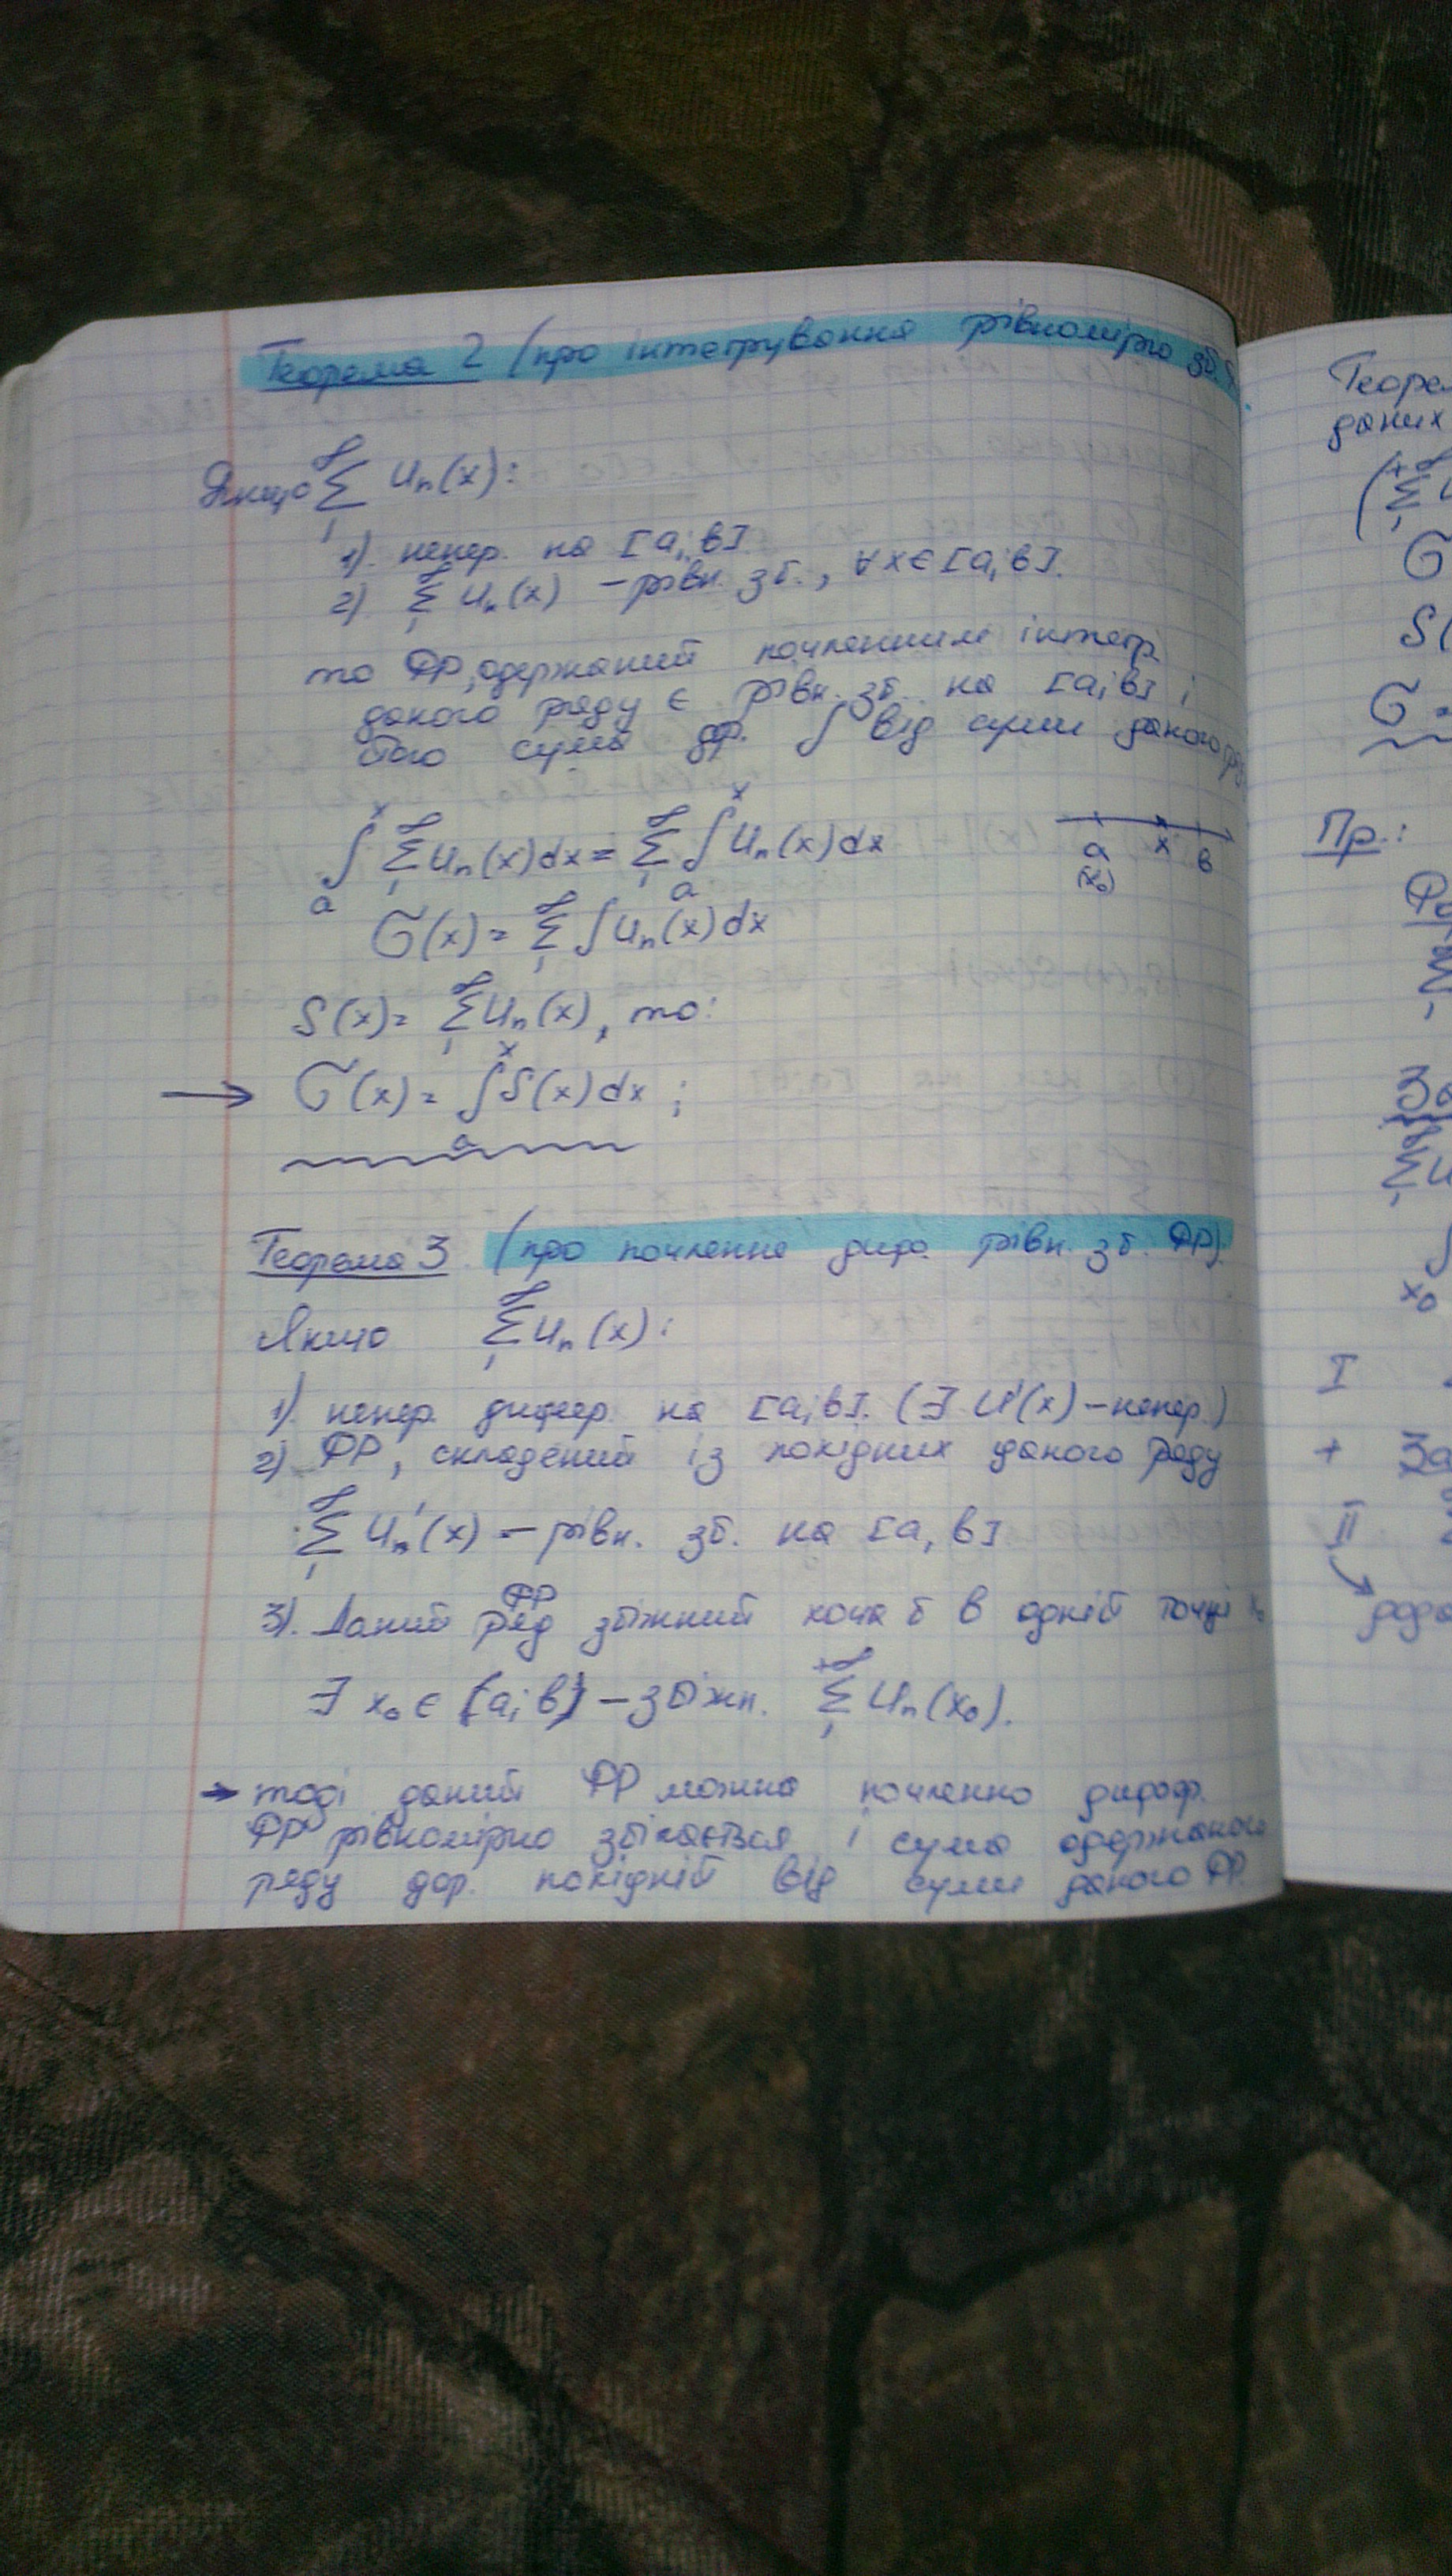 Теорема 2 (про інтегрування рівномірно зб.
Якщо ∞ ∑ 1 Uₙ(x):
1). непер. на [a; b]
2). ∞ ∑ 1 Uₙ(x) – рівн. зб., ∀x∈[a; b].
то ФР, одержаний почленним інтегр.
даного ряду є рівн. зб. на [a; b] і
його сума др. ∫ від суми даного
∫ₐˣ ∞ ∑ 1 Uₙ(x)dx = ∞ ∑ 1 ∫ₐˣ Uₙ(x)dx
a x b
(x₀)
σ(x) = ∞ ∑ 1 ∫Uₙ(x)dx
S(x) = ∞ ∑ 1 Uₙ(x), то:
→ σ(x) = ∫ₐˣ S(x)dx ;
Теорема 3 (про почленне диф. рівн. зб. ФР).
Якщо ∞ ∑ 1 Uₙ(x):
1). непер. дифер. на [a; b]. (∃ U'(x) – непер.)
2) ФР, складений із похідних даного ряду
∞ ∑ 1 Uₙ'(x) – рівн. зб. на [a, b]
ФР
3). Даний ряд збіжний хоча б в одній точці x₀
∃ x₀ ∈ [a; b] – збіжн. +∞ ∑ 1 Uₙ(x₀).
→ тоді даний ФР можна почленно дифф.
ФР рівномірно збігається і сума одержаного
ряду дор. похідній від суми даного ФР.
Теорем
даних
(+∞ ∑ 1
σ
S(
σ =
Пр.:
∑
x₀
I
+ За
II